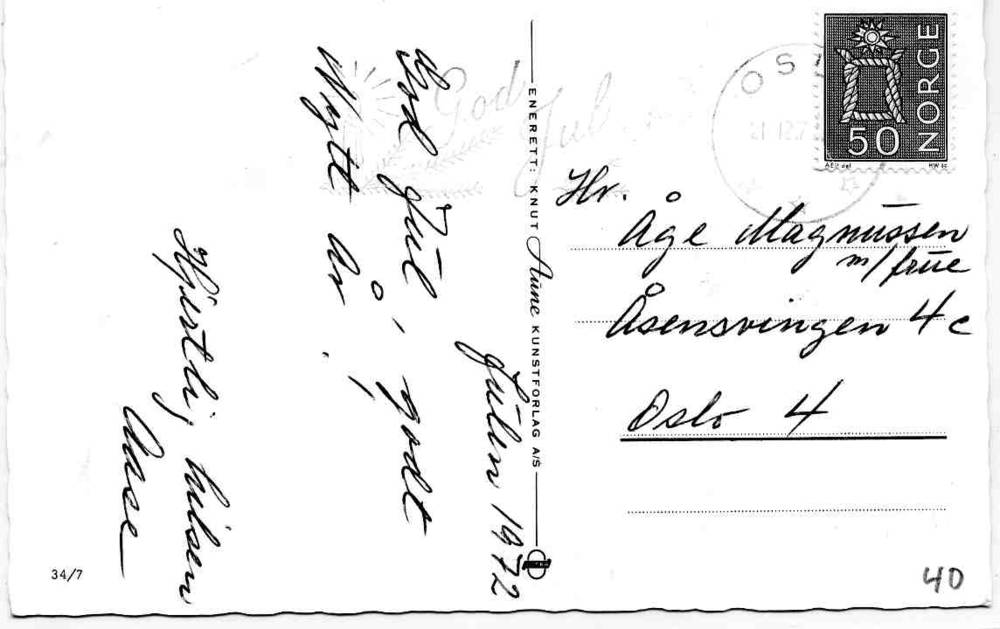 Julen 1972
God Jul å, godt
Nytt år!
Hjertlig hilsen
Aase
ENERETT: KNUT Aune KUNSTFORLAG A/S
34/7
God Jul
OS
NORGE
50
Hr. Åge Magnussen
m/frue
Åsensvingen 4c
Oslo 4
40